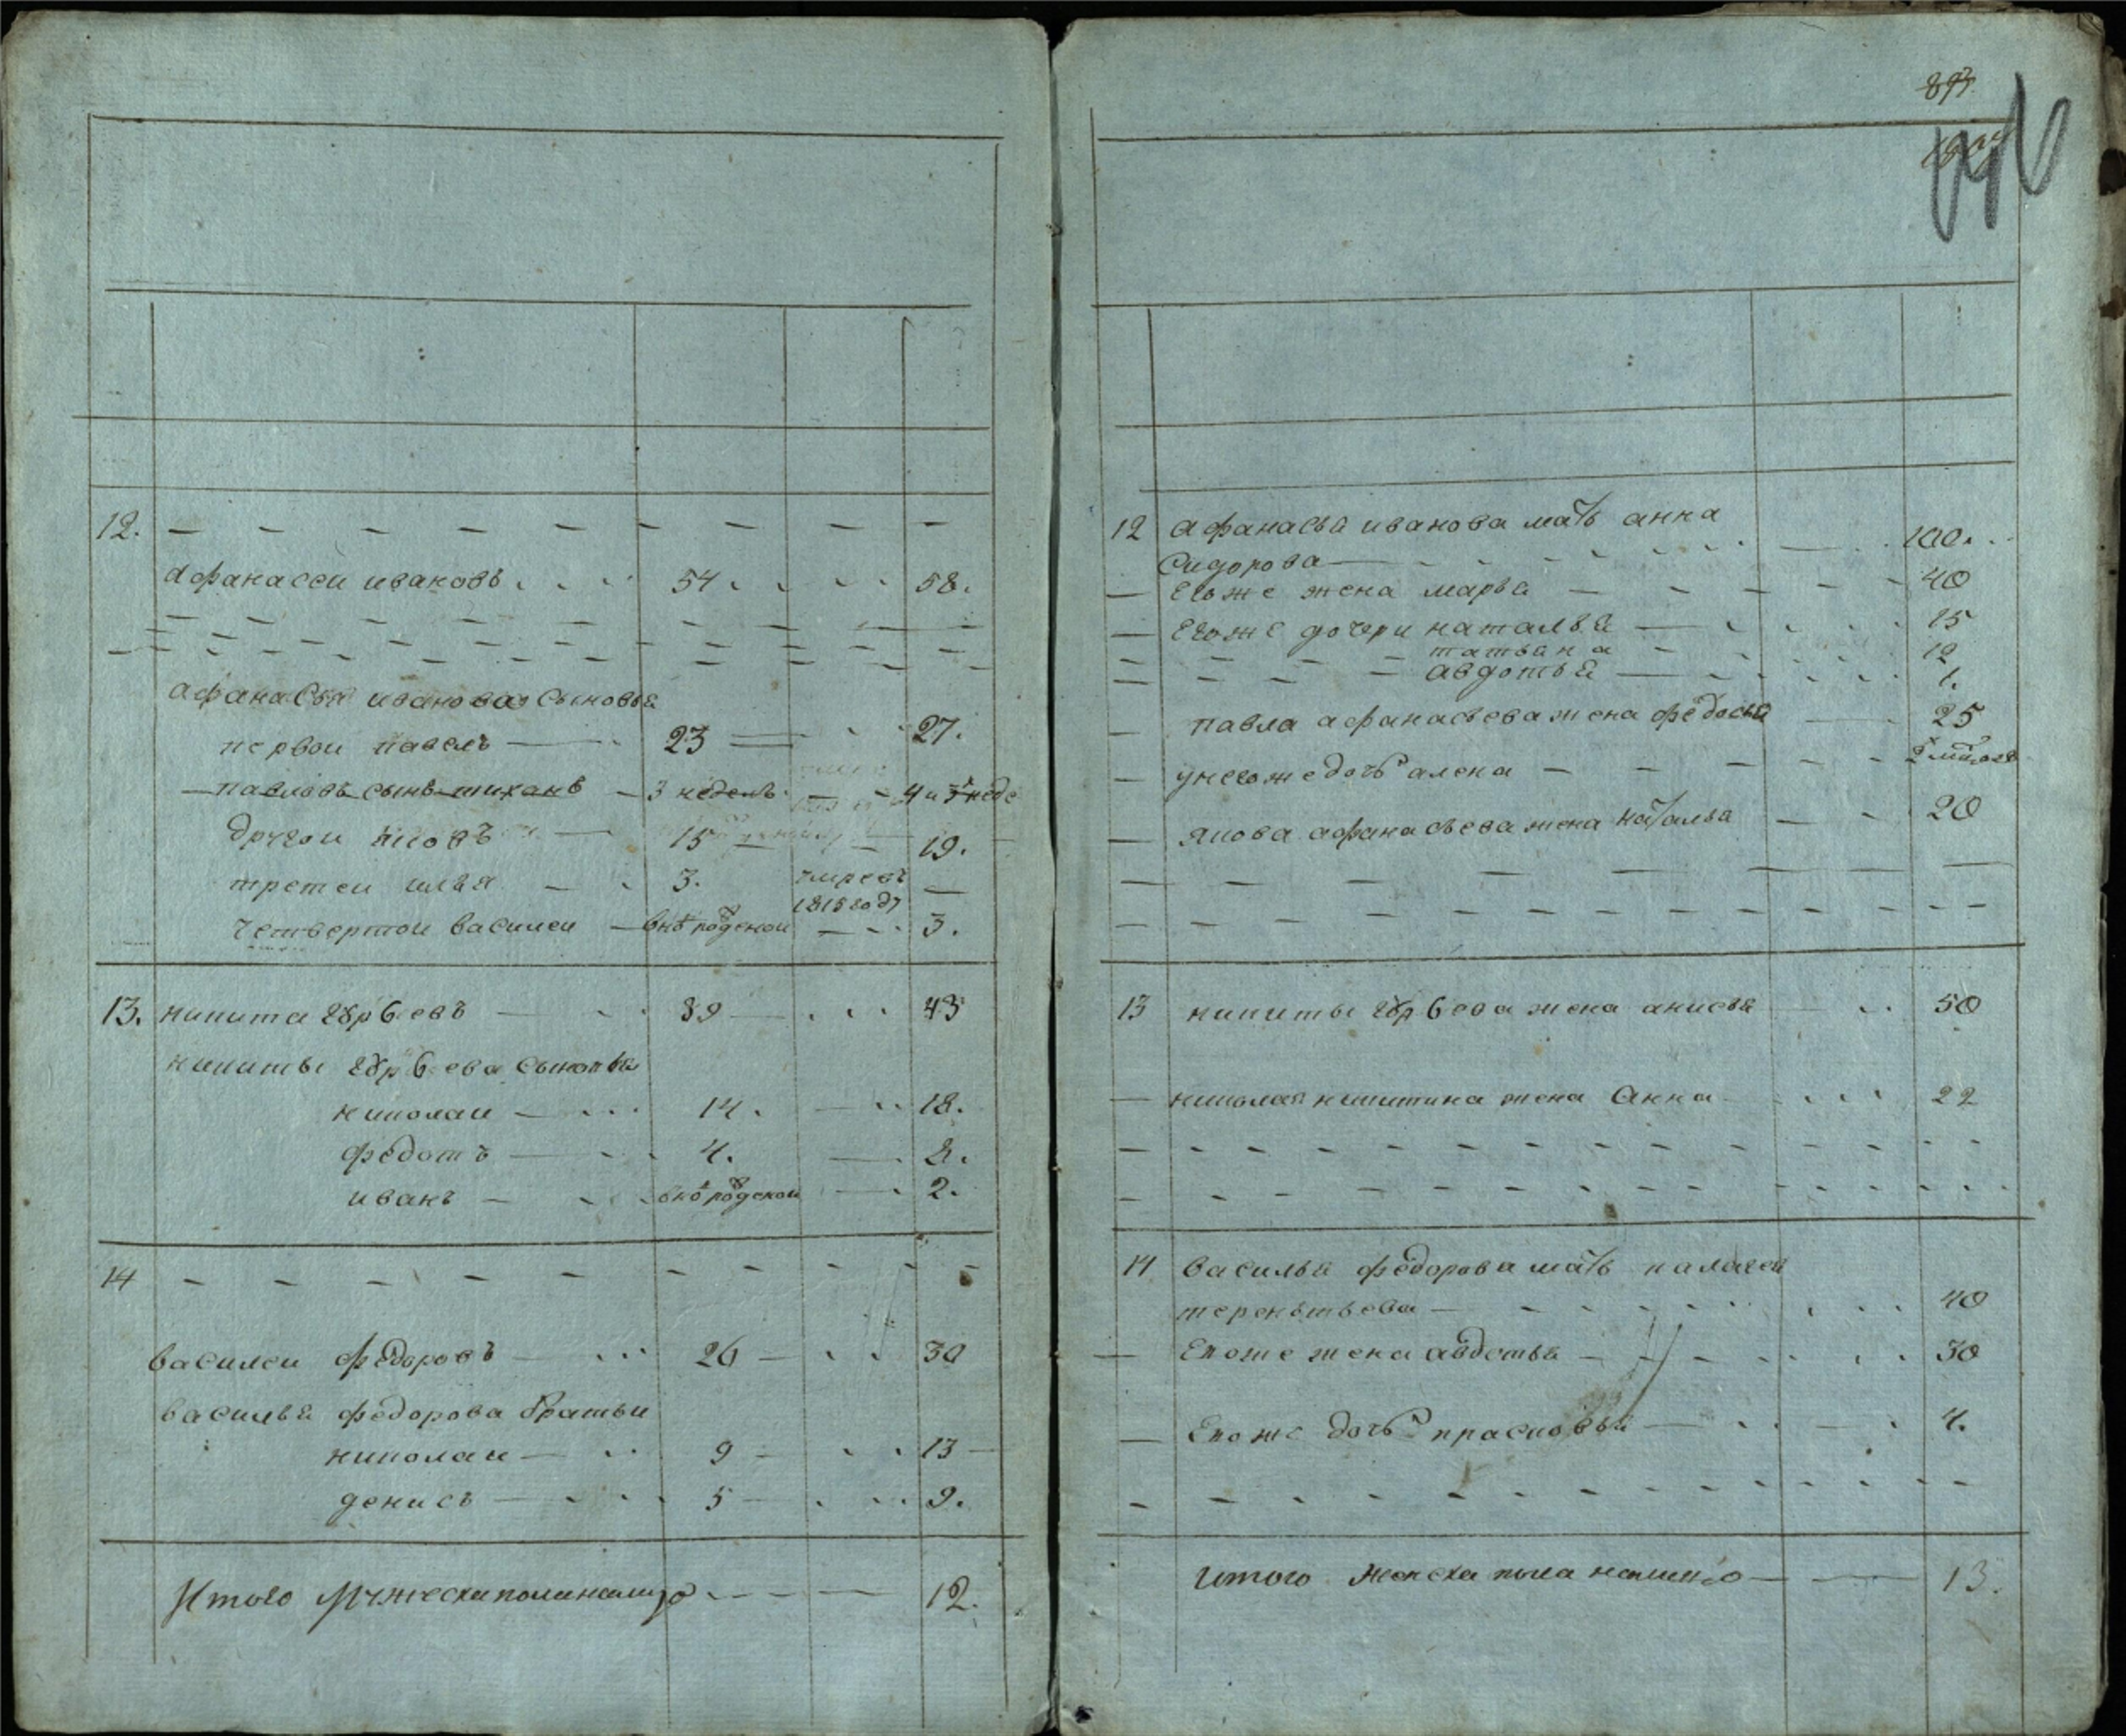 12.
Афанасеи ивановъ 54. 58.
афанасья иванова сыновья
первои павелъ 23 27.
павловъ сынъ тиханъ 3 неделъ 4 и 3 неде
другои яковъ 15 19.
третеи илья 3. умре въ 1815 году
четвертои василеи внѡ рожденои 3.
13. никита 39 43
никиты сыновья
николаи 14. 18.
федотъ 4. 8.
иванъ 2.
14
василеи федоровъ 26 30
василья федорова братьи
николаи 9 13
денисъ 5 9.
Итого мужеска пола налицо 12.
893
12 афанасья иванова мать анна
Сидорова 100.
Егоже жена марья 40
Егоже дочери наталья 15
татьяна 12
авдотья 1.
павла афанасьева жена федосья 25
унегоже дочь алена
якова афанасьева жена наталья 20
13 никиты жена анисья 50
николая никитина жена Анна 22
14 василья федорова мать палагея
терентьева 40
Егоже жена авдотья 30
Егоже дочь прасковья 4.
Итого женска пола налицо 13.